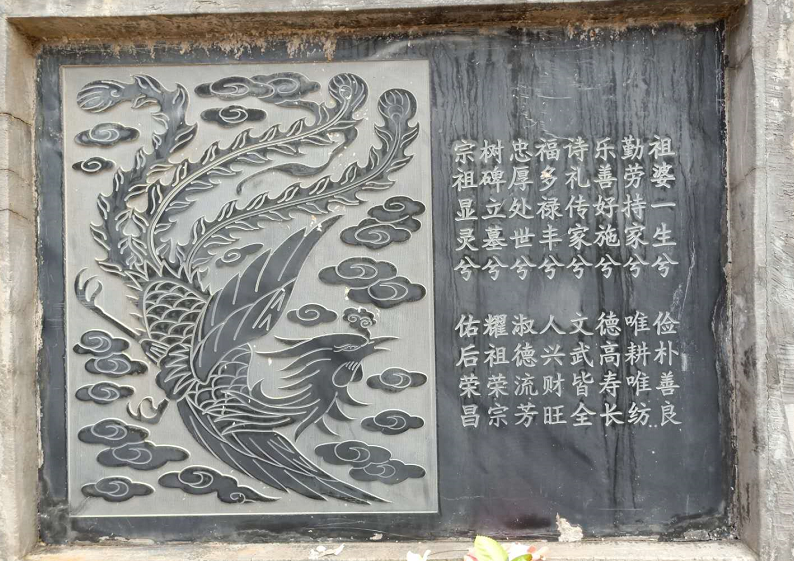 祖婆一生兮 俭朴善良
勤劳持家兮 唯耕唯纺
乐善好施兮 德高寿长
诗礼传家兮 文武皆全
福多禄丰兮 人兴财旺
忠厚处世兮 淑德流芳
树碑立墓兮 耀祖荣宗
宗祖显灵兮 佑后荣昌